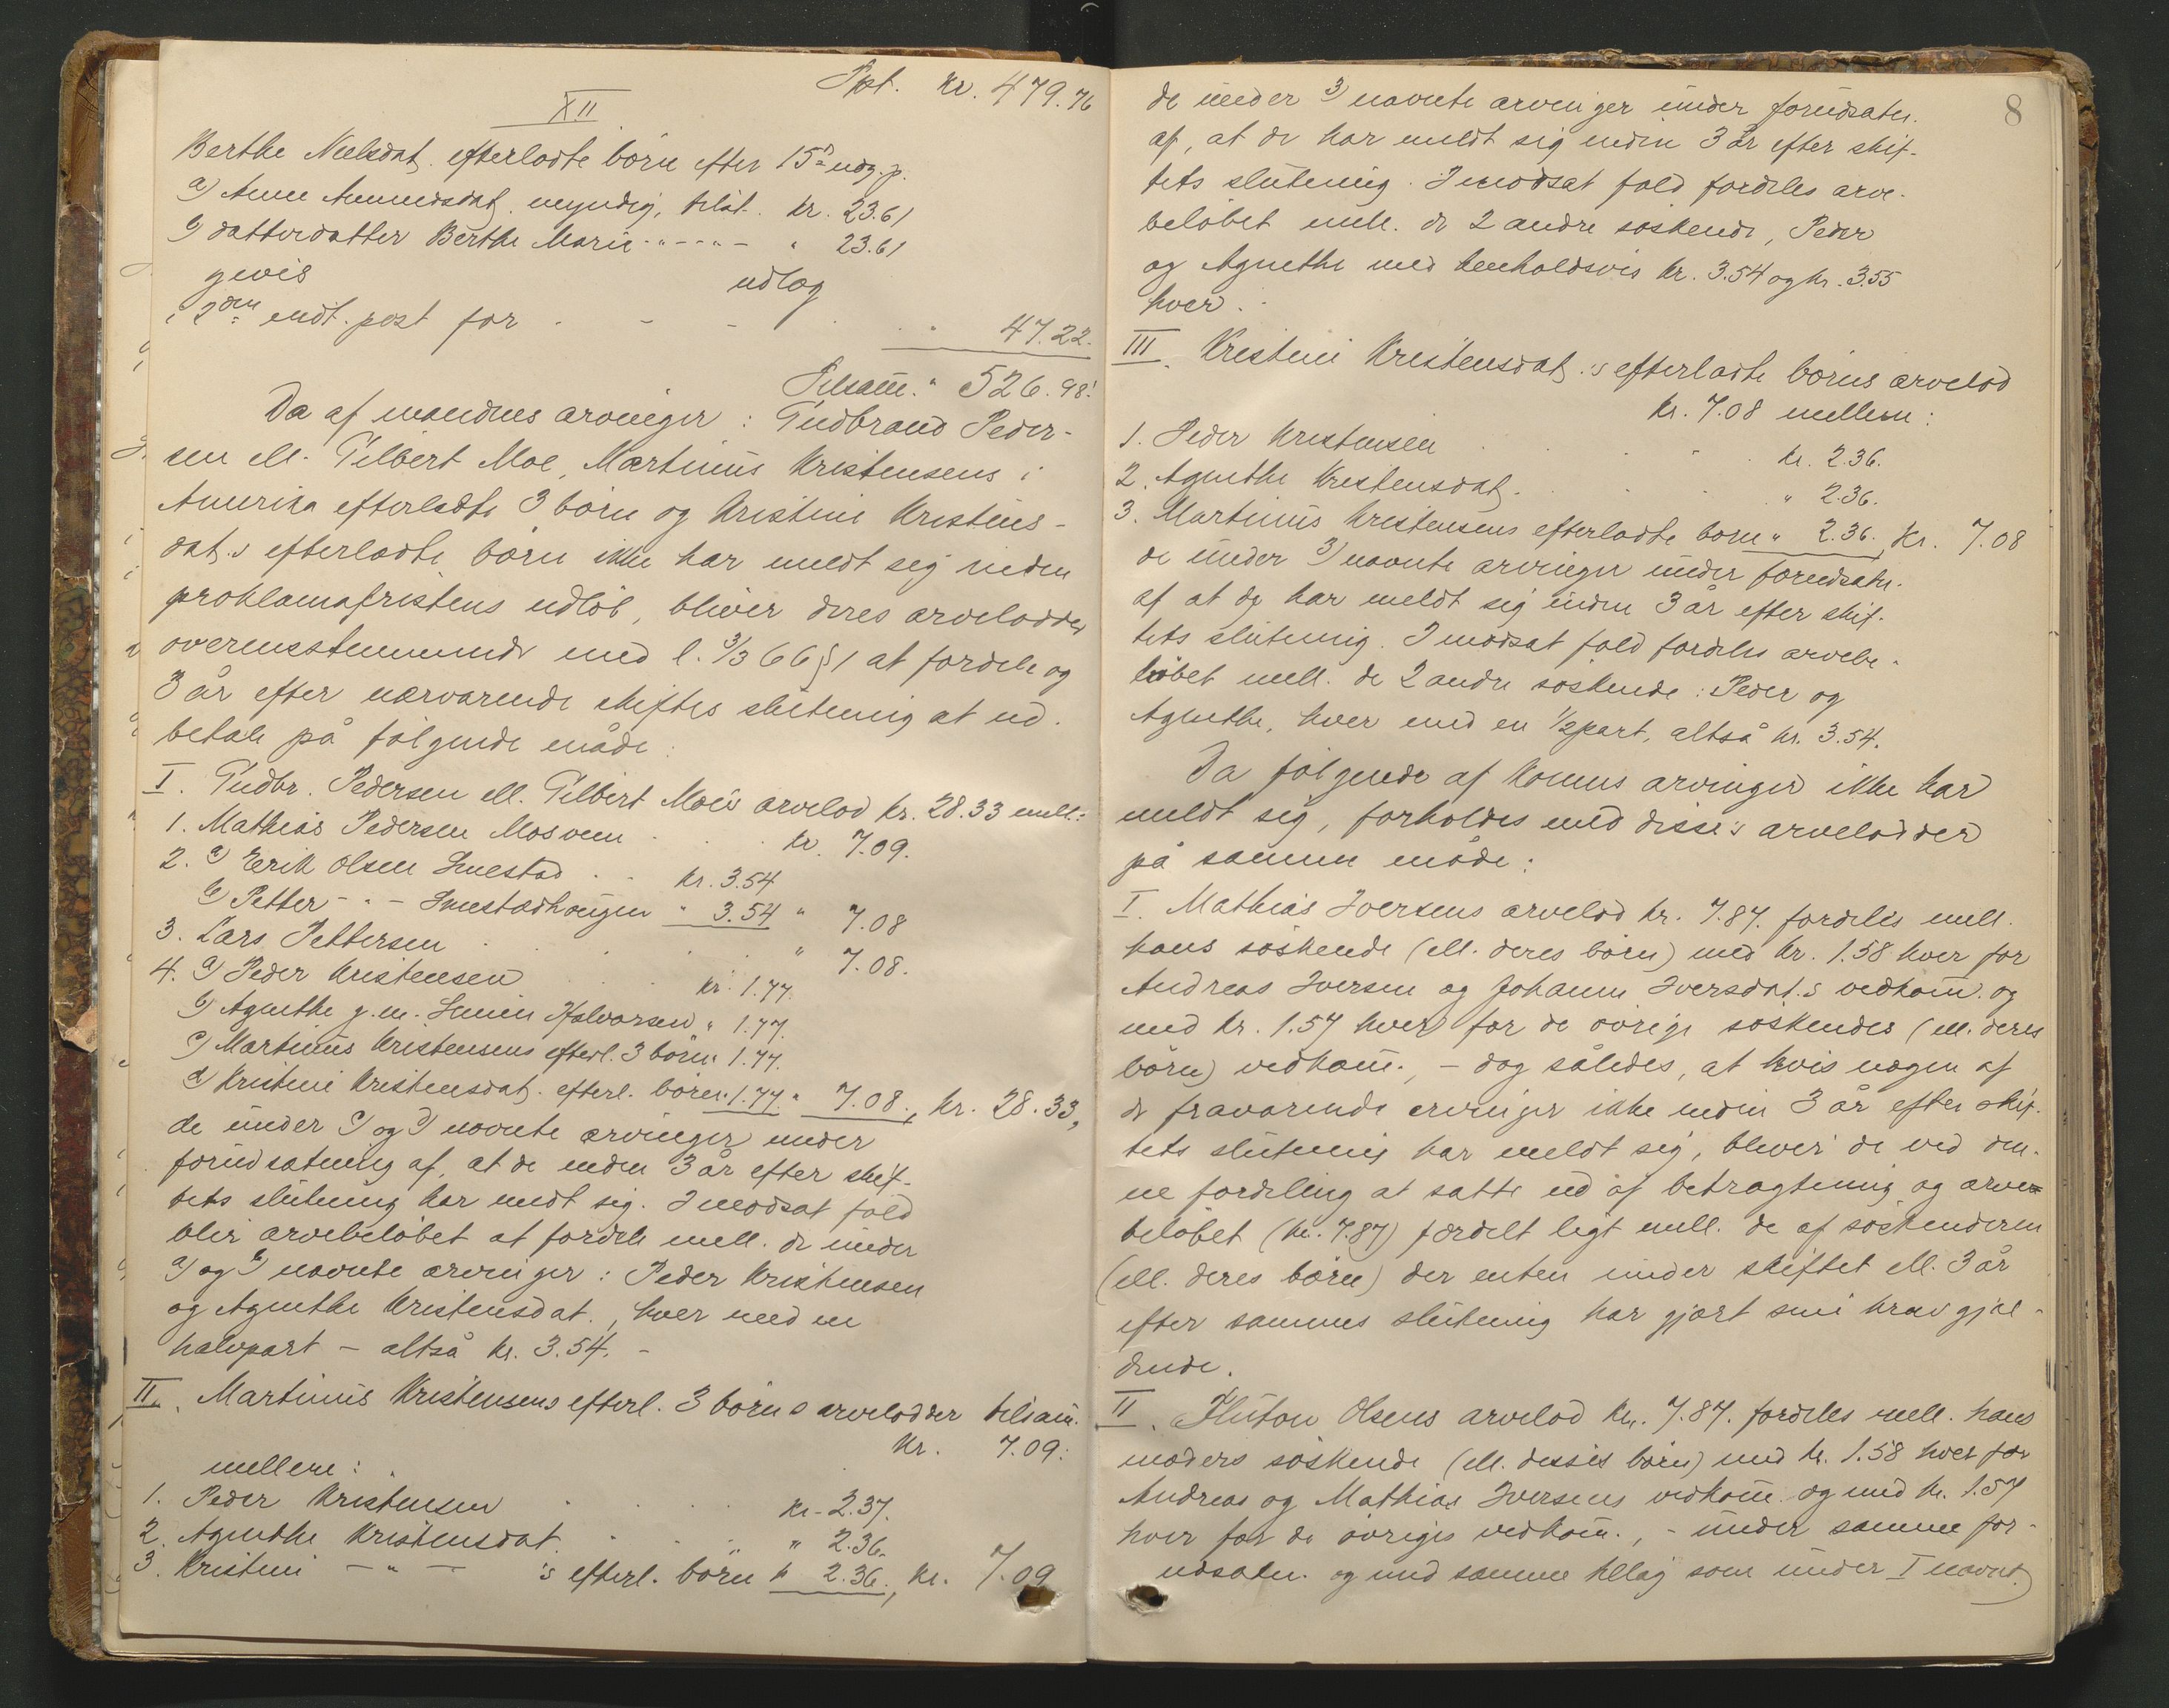 Tpt. kr. 479.76
XII
Berthe Neelsdat. efterladte börn efter 15de udg. p.
a) Anne Amundsdat. myndig, tilst. kr. 23.61
b) datterdatter Berthe Marie -"- - -"- " 23.61
gives udlæg
i 2den indt. post for . - - . . " 47.22.
Tilsam. " 526.98!
Da af mandens arvinger: Gudbrand Peder-
sen ell. Gilbert Moe, Martinus Kristensens i
Amerika efterladte 3 börn og Kristine Kristens-
dat.s efterladte börn ikke har meldt sig inden
proklamafristens udlöb, bliver deres arvelodder
overensstemmende med l. 3/3 66 § 1 at fordele og
3 år efter nærværende skiftes slutning at ud-
betale på fölgende måde:
I. Gudbr. Pedersen ell. Gilbert Moe's arvelod kr. 28.33 mell.:
1. Mathias Pedersen Mosveen . . . kr. 7.09.
2. a) Erik Olsen Smestad . . kr. 3.54
b) Petter - " - Smestadhaugen " 3.54 " 7.08
3. Lars Pettersen . . . . " 7.08.
4. a) Peder Kristensen . . kr. 1.77.
b) Agnethe g. m. Simen Halvorsen " 1.77.
c) Martinus Kristensens efterl. 3 börn " 1.77.
d) Kristine Kristensdat. efterl. börn " 1.77. " 7.08., kr. 28.33,
de under c) og d) nævnte arvinger under
forudsætning af, at de inden 3 år efter skif-
tets slutning har meldt sig. I modsat fald
blir arvebelöbet at fordele mell. de under
a) og b) nævnte arvinger: Peder Kristensen
og Agnethe Kristensdat., hver med en
halvpart - altså kr. 3.54. -
II. Martinus Kristensens efterl. 3 börns arvelodder tilsam.
kr. 7.09:
mellem:
1. Peder Kristensen . . . kr. 2.37.
2. Agnethe Kristensdat. . . . " 2.36.
3. Kristine - " - 's efterl. börn " 2.36., kr. 7.09
8
de under 3) nævnte arvinger under forudsætn.
af, at de har meldt sig inden 3 år efter skif-
tets slutning. I modsat fald fordeles arve-
belöbet mell. de 2 andre söskende, Peder
og Agnethe med henholdsvis kr. 3.54 og kr. 3.55
hver.
III. Kristine Kristensdat.'s efterladte börns arvelod
kr. 7.08 mellem:
1. Peder Kristensen . . . kr. 2.36.
2. Agnethe Kristensdat. . . . " 2.36.
3. Martinus Kristensens efterladte börn " 2.36., kr. 7.08
de under 3) nævnte arvinger under forudsætn.
af at de har meldt sig inden 3 år efter skif-
tets slutning. I modsat fald fordeles arvebe-
löbet mell. de 2 andre söskende: Peder og
Agnethe, hver med en 1/2part, altså kr. 3.54.
Da fölgende af konens arvinger ikke har
meldt sig, forholdes med disse's arvelodder
på samme måde:
I. Mathias Iversens arvelod kr. 7.87. fordeles mell.
hans söskende (ell. deres börn) med kr. 1.58 hver for
Andreas Iversen og Johanne Iversdat.s vedkom. og
med kr. 1.57 hver for de övrige söskendes (ell. deres
börn) vedkom., - dog således, at hvis nogen af
de fraværende arvinger ikke inden 3 år efter skif-
tets slutning har meldt sig, bliver de ved den-
ne fordeling at sætte ud af betragtning og arve-
belöbet (kr. 7.87) fordelt ligt mell. de af söskenderne
(ell. deres börn) der enten under skiftet ell. 3 år
efter sammes slutning har gjort sine krav gjæl-
dende.
II. Olsens arvelod kr. 7.87. fordeles mell. hans
moders söskende (ell. disses börn) med kr. 1.58 hver for
Andreas og Mathias Iversens vedkom. og med kr. 1.57
hver for de övriges vedkom., - under samme for-
udsætn. og med samme tillæg som under I nævnt.